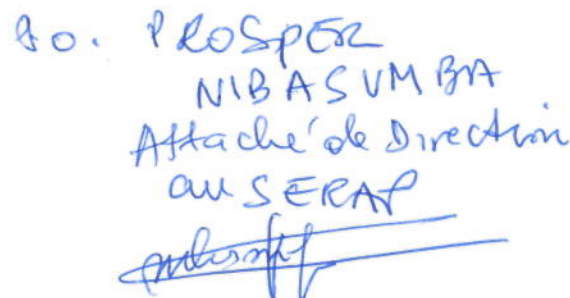 Po. PROSPER
NIBASUMBA
Attaché de Direction
au SERAP